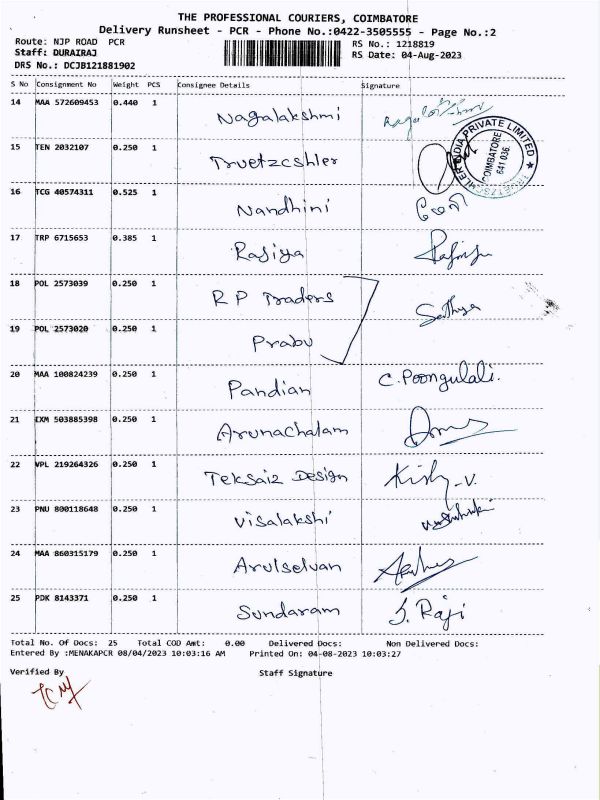 THE PROFESSIONAL COURIERS, COIMBATORE
Delivery Runsheet - PCR - Phone No.:0422-3505555 - Page No.:2
Route: NJP ROAD PCR
RS No.: 1218819
Staff: DURAIRAJ
RS Date: 04-Aug-2023
DRS No.: DCJB121881902
S No Consignment No Weight PCS Consignee Details Signature
14 MAA 572609453 0.440 1 Nagalakshmi
15 TEN 2032107 0.250 1 Truetzcshler
INDIA PRIVATE LIMITED
COIMBATORE
641 036.
16 TCG 40574311 0.525 1 Nandhini
17 TRP 6715653 0.385 1 Rajiya
18 POL 2573039 0.250 1 R P Traders
Sathya
19 POL 2573020 0.250 1 Prabu
20 MAA 100824239 0.250 1 Pandian C. Poongulali.
21 EXM 503885398 0.250 1 Arunachalam
22 VPL 219264326 0.250 1 Teksaiz Design
23 PNU 800118648 0.250 1 Visalakshi
24 MAA 860315179 0.250 1 Arulselvan
25 PDK 8143371 0.250 1 Sundaram J. Raji
Total No. Of Docs: 25 Total COD Amt: 0.00 Delivered Docs: Non Delivered Docs:
Entered By :MENAKAPCR 08/04/2023 10:03:16 AM Printed On: 04-08-2023 10:03:27
Verified By Staff Signature